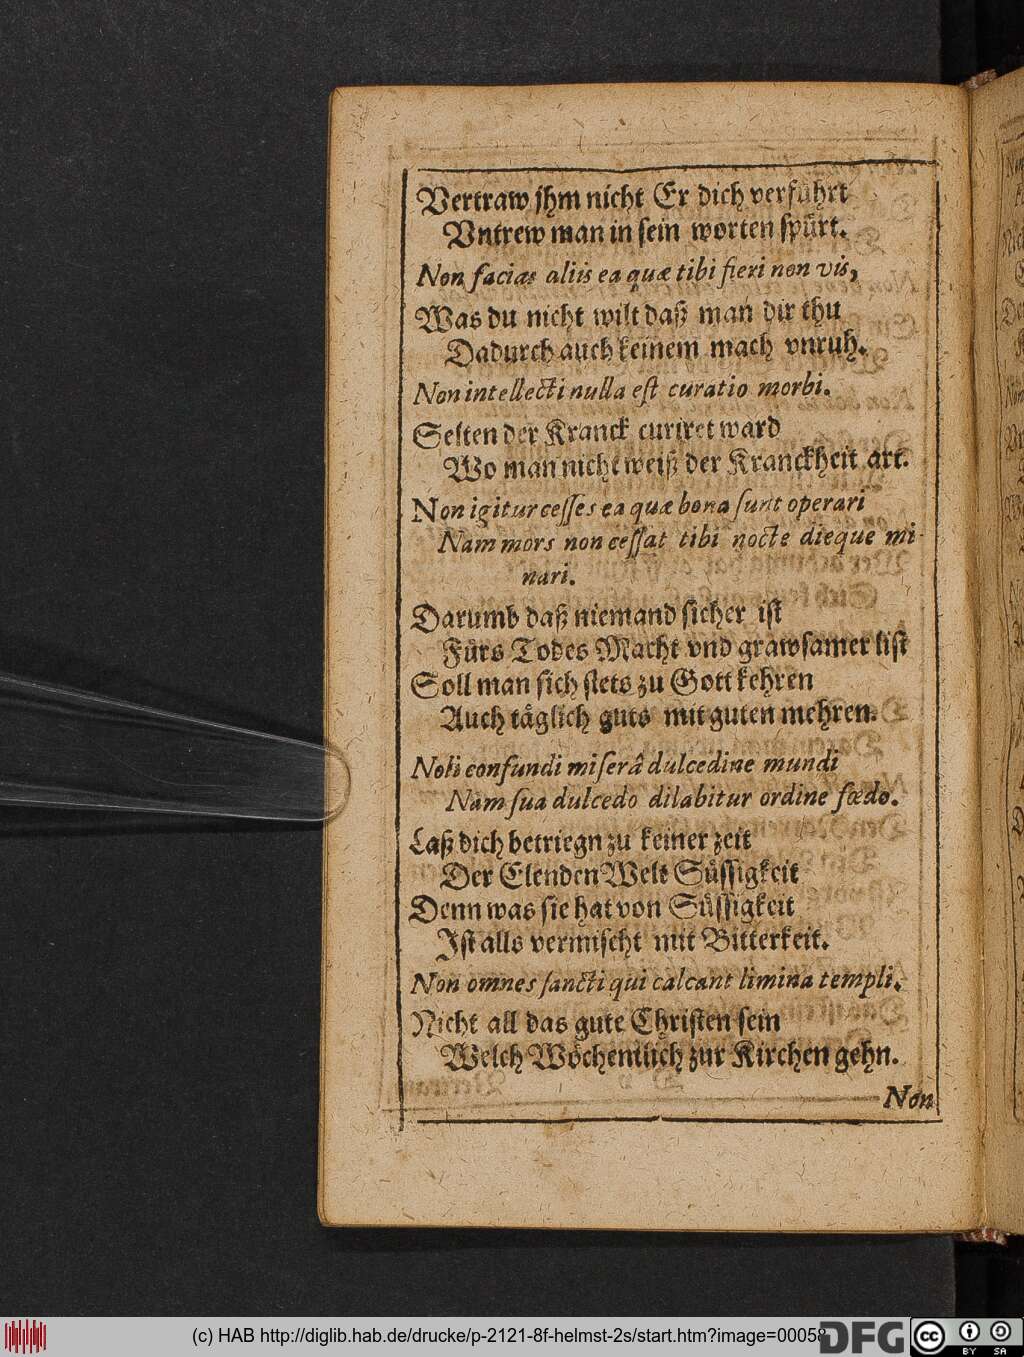 Vertraw jhm nicht Er dich verführt
Vntrew man in sein worten spürt.
Non facias aliis ea quæ tibi fieri non vis,
Was du nicht wilt daß man dir thu
Dadurch auch keinem mach vnruh.
Non intellecti nulla est curatio morbi.
Selten der Kranck curiret ward
Wo man nicht weiß der Kranckheit art.
Non igitur cesses ea quæ bona sunt operari
Nam mors non cessat tibi nocte dieque mi-
nari.
Darumb daß niemand sicher ist
Fürs Todes Macht vnd grawsamer list
Soll man sich stets zu Gott kehren
Auch täglich guts mit guten mehren.
Noli confundi miserâ dulcedine mundi
Nam sua dulcedo dilabitur ordine fœdo.
Laß dich betriegn zu keiner zeit
Der Elenden Welt Süssigkeit
Denn was sie hat von Süssigkeit
Ist alls vermischt mit Bitterkeit.
Non omnes sancti qui calcant limina templi.
Nicht all das gute Christen sein
Welch Wöchentlich zur Kirchen gehn.
Non
(c) HAB http://diglib.hab.de/drucke/p-2121-8f-helmst-2s/start.htm?image=00058
DFG
cc BY SA